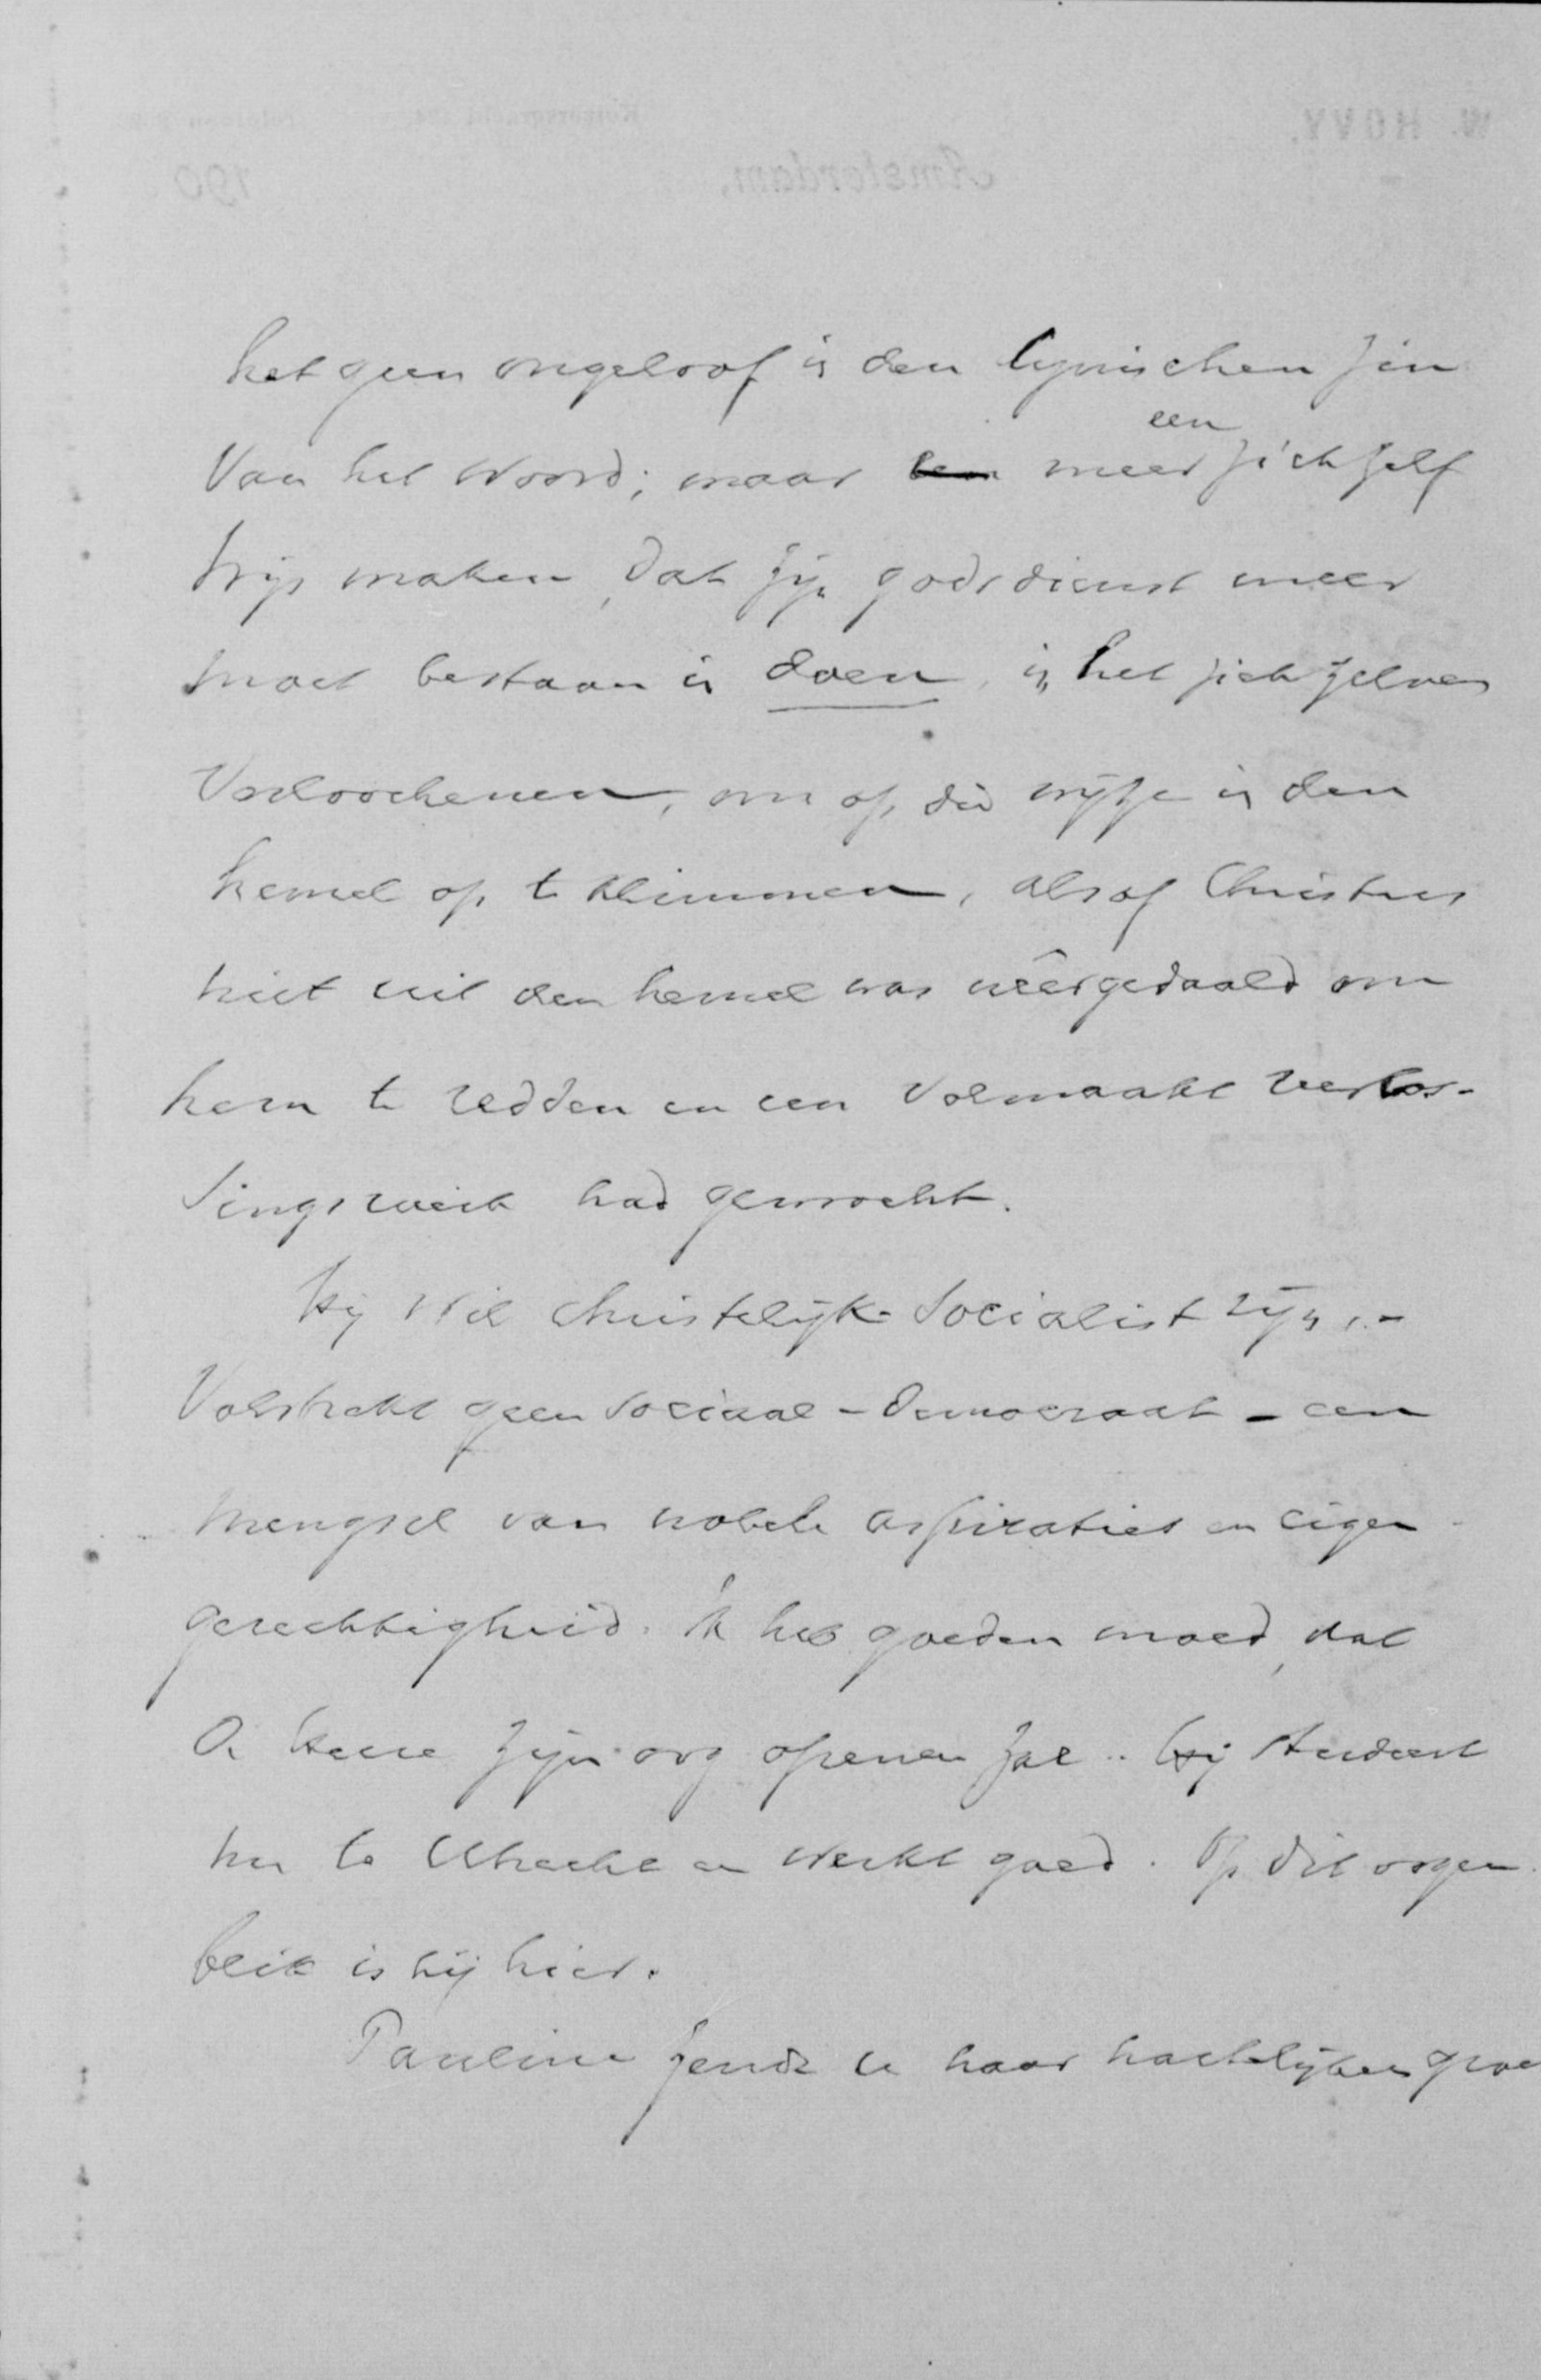 het geen ongeloof in den cynischen zin
van het woord; maar meer een zichzelf
wijs maken, dat zijn godsdienst meer
moet bestaan in doen, in het zich zelven
verloochenen, om op die wijze in den
hemel op te klimmen, alsof Christus
niet uit den hemel was nêergedaald om
hem te redden en een volmaakt verlos-
singswerk had gewrocht.
Hij wil christelijk-socialist zijn, -
volstrekt geen sociaal-democraat - een
mengsel van nobele aspiraties en eigen-
gerechtigheid. Ik heb goeden moed, dat
de Heere zijn oog openen zal. Hij studeert
nu te Utrecht en werkt goed. Op dit oogen-
blik is hij hier.
Pauline zendt u haar hartelijken groe